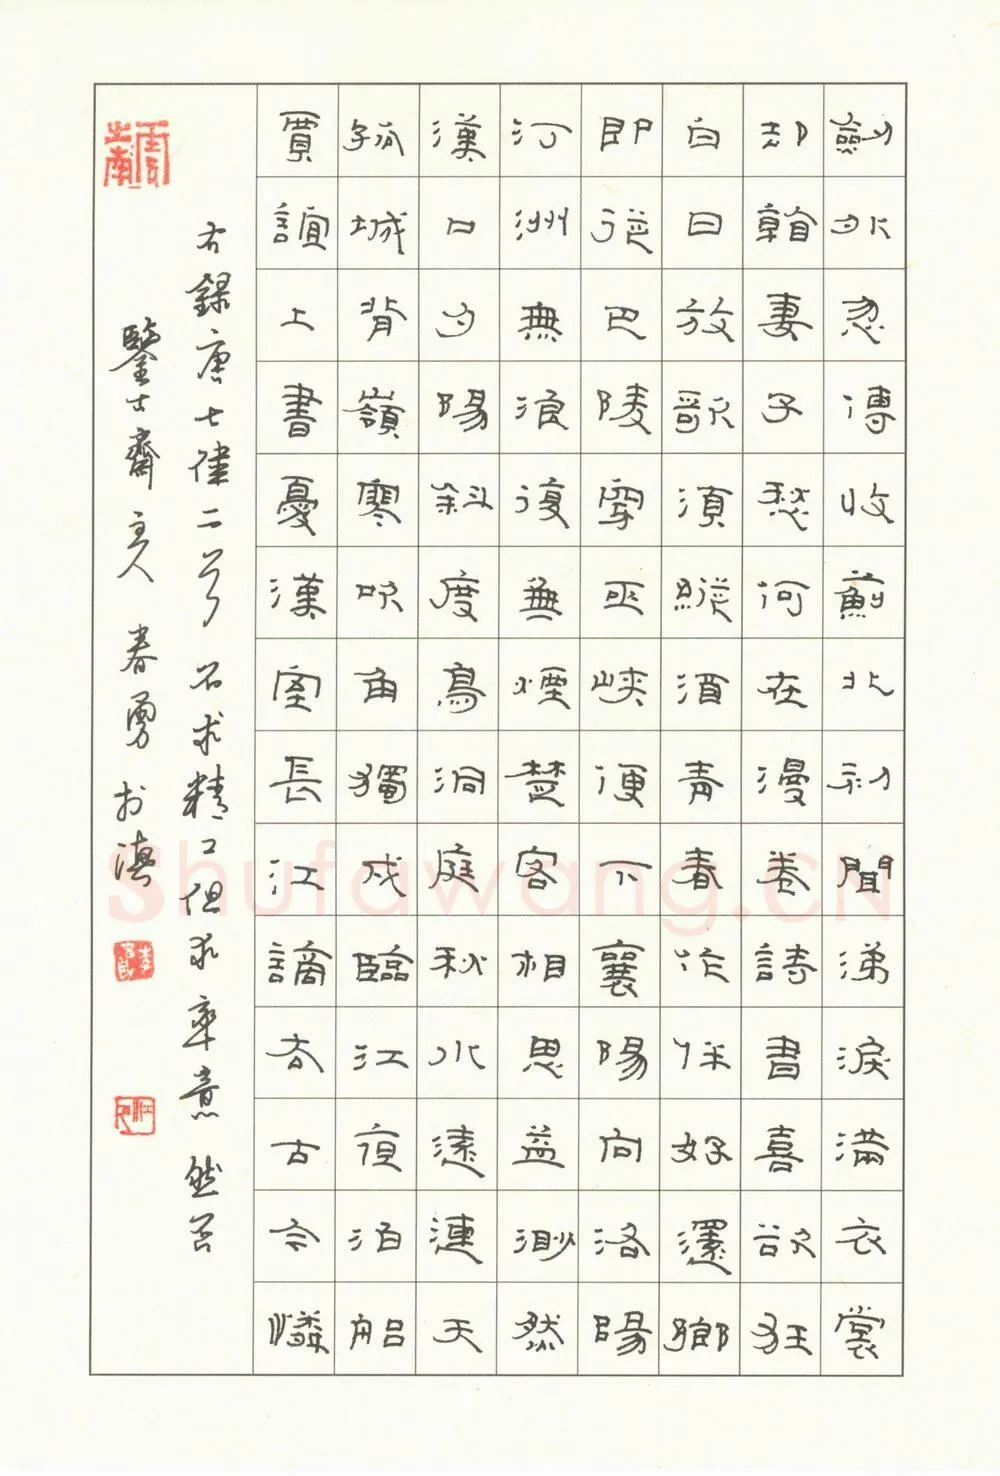 劍外忽傳收薊北初聞涕淚滿衣裳
却看妻子愁何在漫卷詩書喜欲狂
白日放歌須縱酒青春作伴好還鄉
即從巴陵穿巫峽便下襄陽向洛陽
汀洲無浪復無煙楚客相思益渺然
漢口夕陽斜度鳥洞庭秋水遠連天
孤城背嶺寒吹角獨戍臨江夜泊船
賈誼上書憂漢室長江謫去古今憐
右錄唐七律二首 不求精工但求率意 然否
鑒士齋主人 春勇於滇
Shufawang.CN